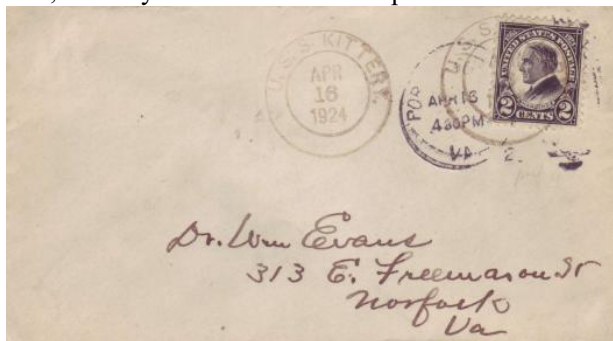 U.S.S. KITTERY.
APR
16
1924
U.S.S.
POR
APR 16
4 30 PM
VA.
2
UNITED STATES POSTAGE
2 CENTS 2
Dr. Wm Evans
313 E. Freemason St
Norfolk
Va